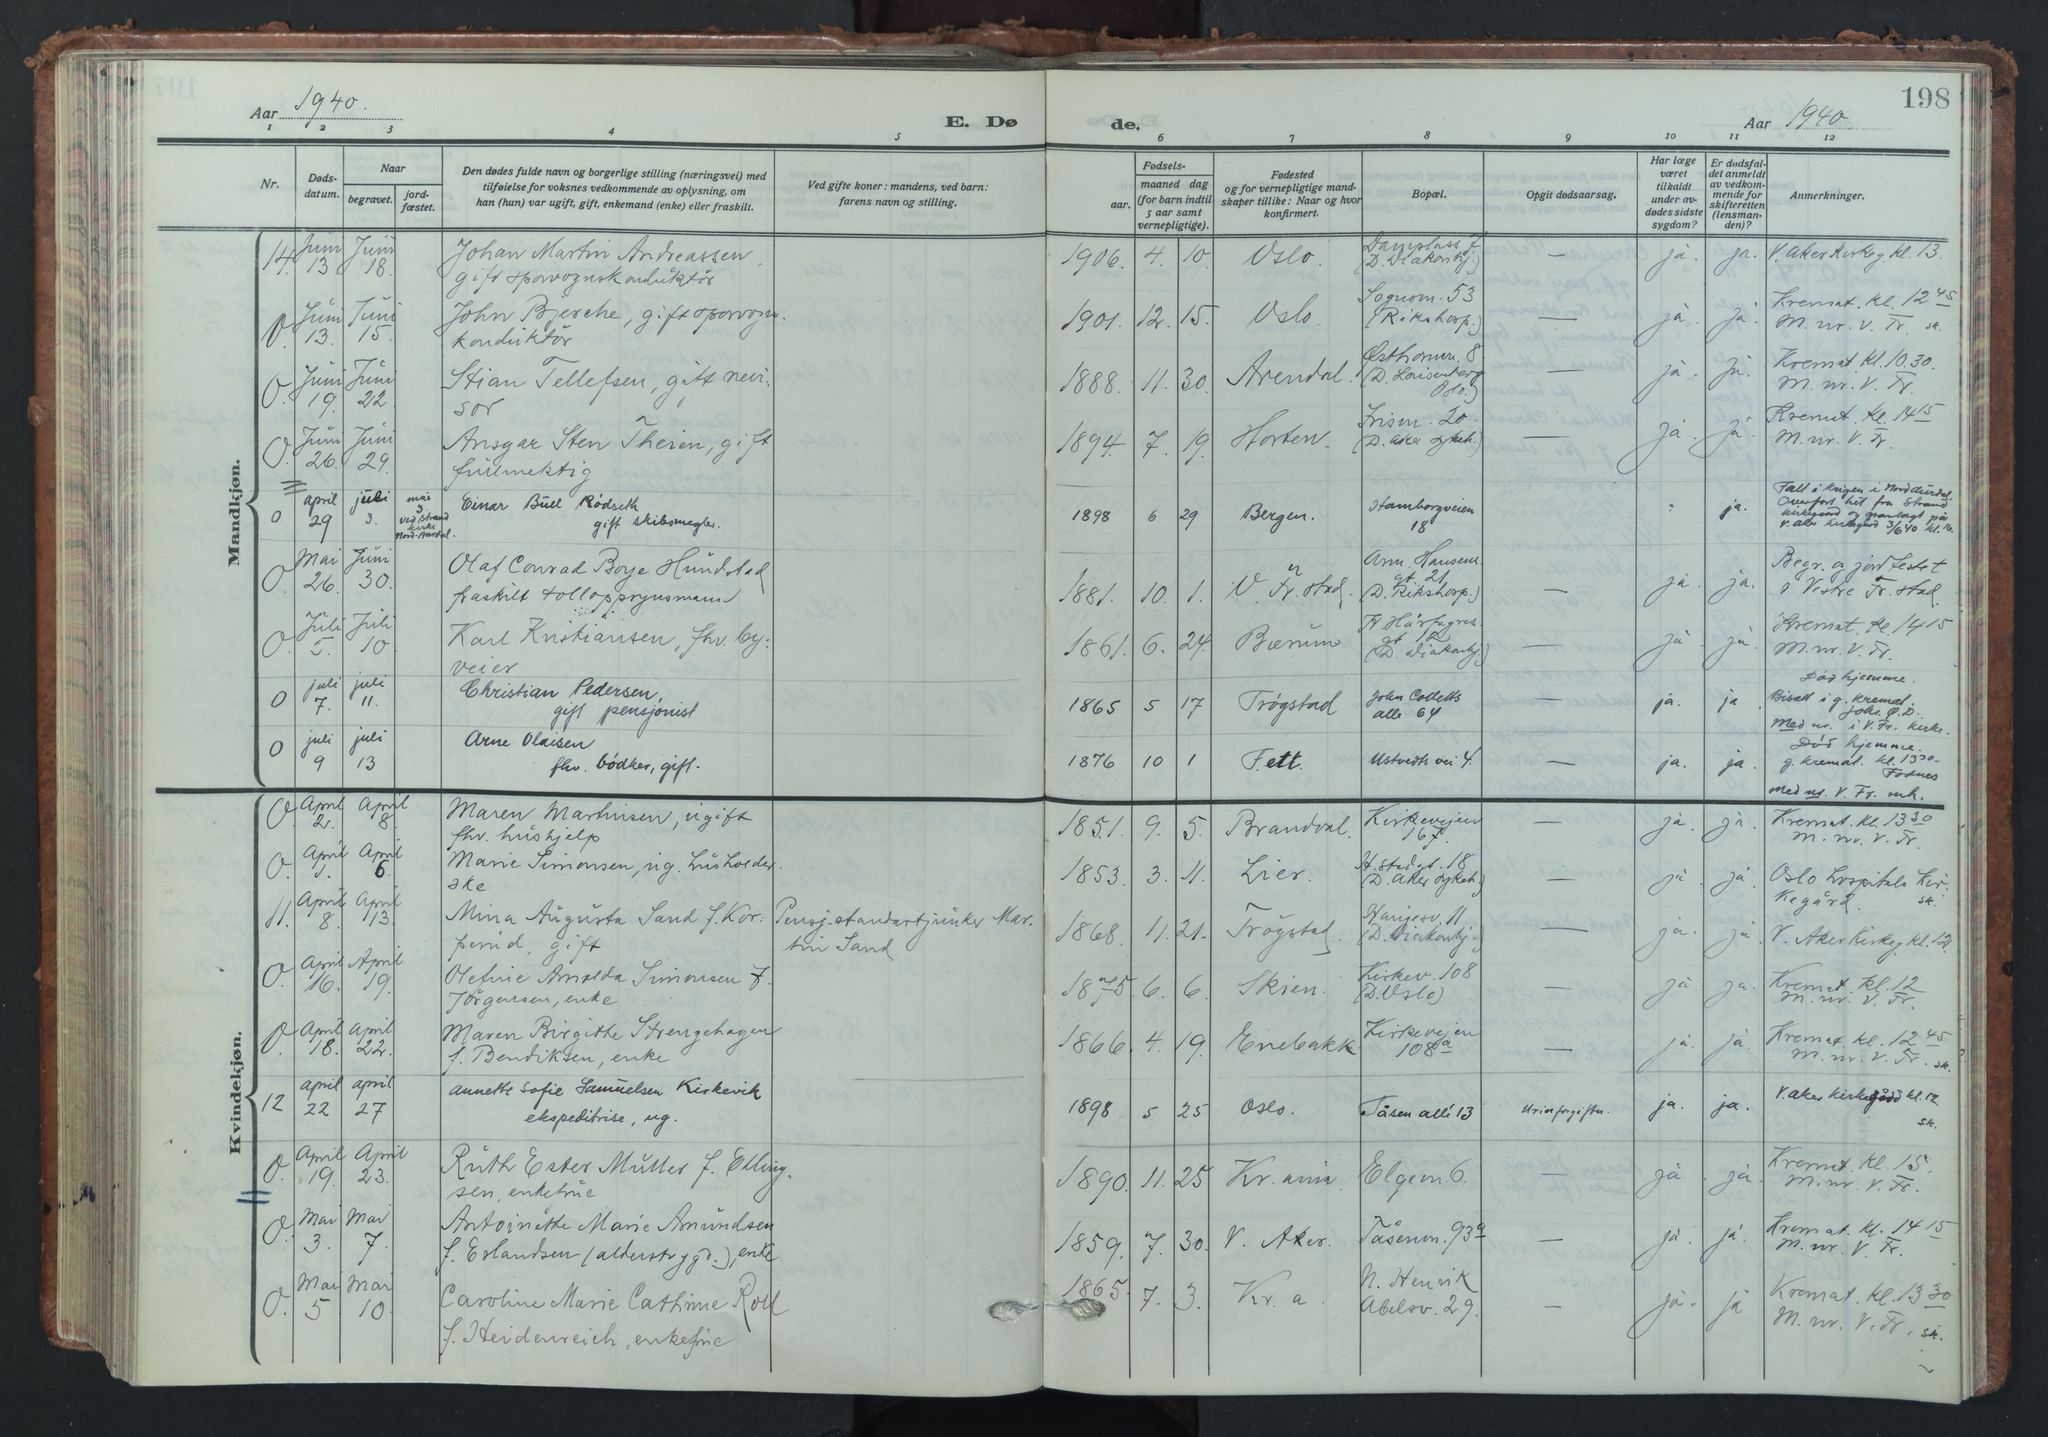 198
Aar 1940.
E. Dø
de.
Aar 1940.
1 2 3 4 5 6 7 8 9 10 11 12
Nr.
Døds-
datum.
Naar
begravet.
jord-
fæstet.
Den dødes fulde navn og borgerlige stilling (næringsvei) med
tilføielse for voksnes vedkommende av oplysning, om
han (hun) var ugift, gift, enkemand (enke) eller fraskilt.
Ved gifte koner: mandens, ved barn:
farens navn og stilling.
Fødsels-
aar.
maaned dag
(for barn indtil
5 aar samt
vernepligtige).
Fødested
og for vernepligtige mand-
skaper tillike: Naar og hvor
konfirmert.
Bopæl.
Opgit dødsaarsag.
Har læge
været
tilkaldt
under av-
dødes sidste
sygdom?
Er dødsfal-
det anmeldt
av vedkom-
mende for
skifteretten
(lensman-
den)?
Anmerkninger.
Maandkjøn.
14. Juni 13 Juni 18. Johan Martin Andreassen
gift sporvognskonduktör
1906. 4. 10. Oslo. Damplass 7
(D. Diakonhj.) — ja. ja. V. Aker Kirkeg. kl. 13.
O. Juni 13. Juni 15. John Bjerche, gift sporvogn.
konduktör
1901. 12. 15. Oslo. Sognsv. 53
(Rikshosp.) — ja. ja. Kremat. kl. 12 45
M. nr. V. Fr. sk.
O. Juni 19. Juni 22. Stian Tellefsen, gift revi-
sor
1888. 11. 30. Arendal. Østhornv. 8.
(D. Lovisenberg
Oslo.) — ja. ja. Kremat. kl. 10.30.
M. nr. V. Fr.
O. Juni 26. Juni 29. Ansgar Sten Theien, gift
fullmektig
1894. 7. 19. Horten. Frism. 20.
(D. Aker sykeh.) — ja. ja. Kremat. kl. 14 15
M. nr. V. Fr.
O april 29 juli 3. mai 3
ved Strand
kirke
Nord-Aurdal.
Einar Bull Rødseth
gift skibsmegler
1898 6 29 Bergen. Stamborgveien
18 ja. Falt i krigen i Nord Aurdal.
Overført hit fra Strand
kirkegård og gravlagt på
V. aker kirkegård 3/6 40 kl. 16.
O. Mai 26. Juni 30. Olaf Conrad Boye Hundstad
fraskilt tolloppsynsmann
1881. 10. 1. V. Fr. stad. Arn. Hansens
gt. 21
(D. Rikshosp.) — ja. ja. Begr. og jordfestet
i Vestre Fr. stad.
O. Juli 5. Juli 10. Karl Kristiansen, fhv. by-
veier
1861. 6. 24. Bærum H. Hårfagres
gt. 12
(D. Diakonhj.) — ja. ja. Kremat. kl. 14 15
M. nr. V. Fr.
O juli 7. juli 11. Christian Pedersen,
gift pensjonist
1865 5 17 Trøgstad John Colletts
alle 64 — ja. ja Død hjemme.
Bisatt i g. kremat.
Med nr. i V. Fr. kirke.
O juli 9 juli 13 Arne Olaisen
fhv. bødker, gift.
1876 10 1 Fett. Ustvedts vei 4. — ja. ja. Død hjemme.
g. kremat. kl. 13 30
med nr. V. Fr. mk.
Kvindekjøn.
O. April 2. April 8. Maren Martinsen, ugift
fhv. hushjelp
1851. 9. 5. Brandval. Kirkeveien
167. — ja. ja. Kremat. kl. 13 30
M. nr. V. Fr.
O. April 1. April 6. Marie Simonsen, ug. husholder-
ske
1853. 3. 11. Lier. St. stadgt. 18
(D. Aker sykeh.) — ja ja. Oslo hospitals Kir-
kegård. sk.
11. April 8. April 13. Mina Augusta Sand f. Kor-
perud, gift
Pensj. standartjunker Mar-
tin Sand
1868. 11. 21. Trøgstad. Stangesv. 11
(D. Diakonhj. — ja. ja. V. Aker Kirkeg. kl. 12
O. April 16. April 19. Olefine Amalda Simonsen f.
Jørgensen, enke
1875. 6. 6. Skien. Kirkev. 108
(D. Oslo) — ja. ja. Kremat. kl. 12
M. nr. V. Fr.
O. April 18. April 22. Maren Birgitte Strengehagen
f. Bendiksen, enke
1866. 4. 19. Enebakk Kirkeveien
108 a — ja. ja. Kremat. kl. 12 45
M. nr. V. Fr. sk.
12 april 22 april 27 Annette Sofie Samuelsen Kirkevik
ekspeditrise, ug.
1898 5 25 Oslo. Tåsen allé 13 Urinforgiftn. ja. ja. V. aker kirkegård kl. 12.
sk.
O. April 19. April 23. Ruth Ester Müller f. Elling-
sen, enkefrue
1890. 11. 25 Kr. ania Elgevn. 6. — ja ja. Kremat. kl. 15.
M. nr. V. Fr.
O. Mai 3. Mai 7. Antoinette Marie Amundsen
f. Erlandsen (alderstrygd.), enke
1859. 7. 30. V. Aker. Tåsenvn. 93 a — ja. ja. Kremat. kl. 14 15
M. nr. V. Fr.
O. Mai 5 Mai 10. Caroline Marie Cathrine Roll
f. Heidenreich, enkefrue
1865. 7. 3. Kr. a. N. Henrik
Abelsv. 29. — ja. ja Kremat. kl. 13 30
M. nr. V. Fr. sk.